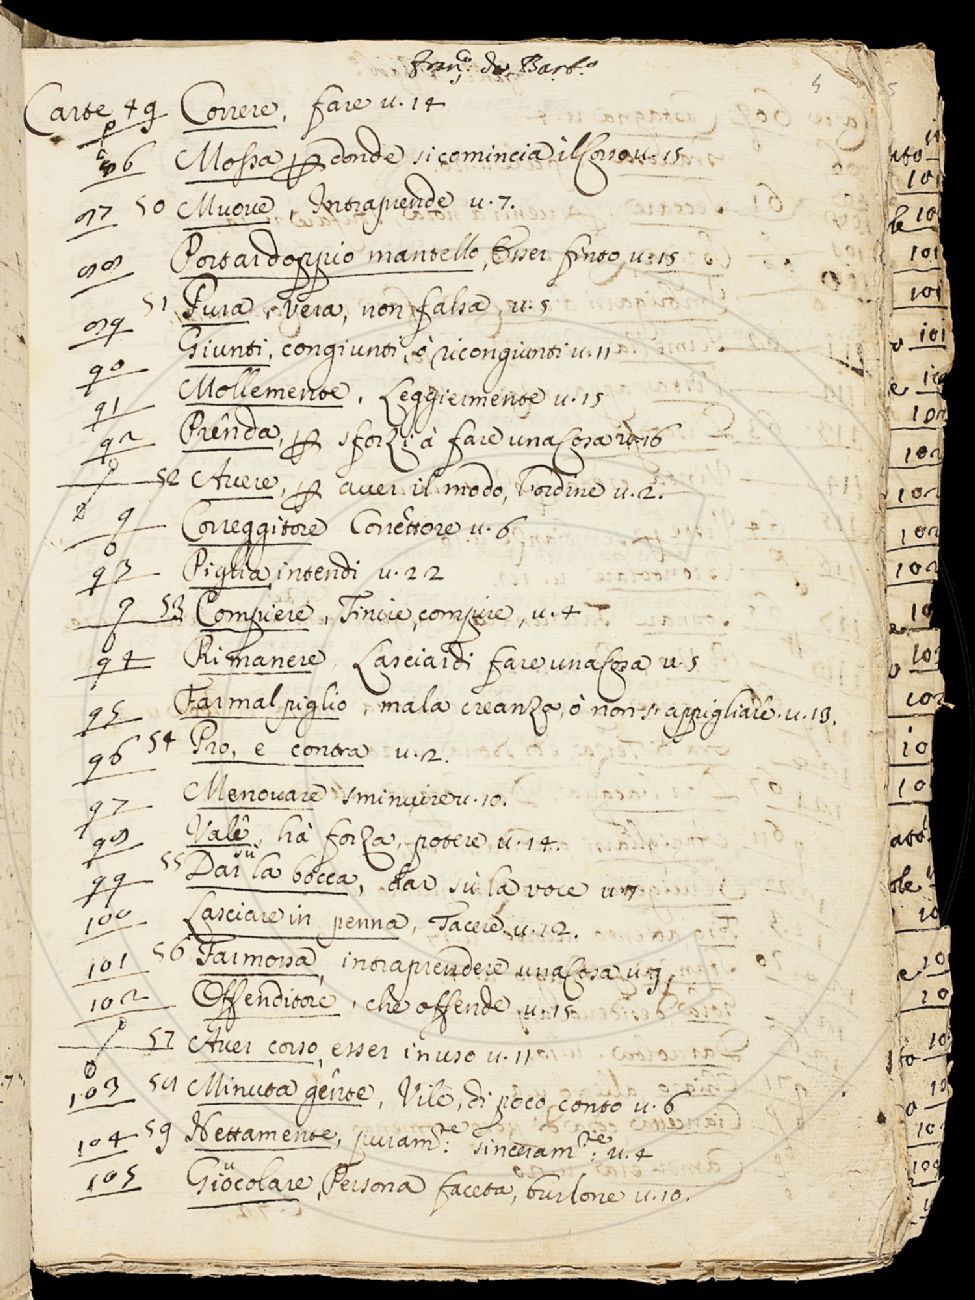 Franc.º da Barb.º
5
Carte 49 Correre, fare v. 14
86 Mossa p donde si comincia il Corso v. 15
87 50 Muove, Intraprende v. 7.
88 Portar doppio mantello, Esser finto v. 15
51 Pura, vera, non falsa, v. 5
89 Giunti, congiunti, ò ricongiunti v. 11
90 Mollemente, Leggiermente v. 15
91
92 Prenda, p sforzi à fare una Cosa v. 16
52 Avere, p aver il modo, l'ordine v. 2.
Correggitore Corrêttore v. 6
93 Piglia intendi v. 22
53 Compiere, Finire, compire, v. 4
94 Rimanere, Lasciar di fare una Cosa v. 5
95 Far mal piglio, mala creanza, ò non s'appigliare. v. 13.
96 54 Pro, e contra v. 2.
97 Menovare sminuire v. 10.
98 Vale, hà forza, potere v. 14.
99 55 Dar sù la bocca, dar sù la voce v. 7
100 Lasciare in penna, Tacere v. 12.
101 56 Far mossa, intraprendere una Cosa v. 9,
102 Offenditore, chè offende v. 15
57 Aver corso, esser in uso v. 11
103 58 Minuta gente, Vile, di poco conto v. 6
104 59 Nettamente, puram.te: sinceram.te: v. 4
105 Giucolare, Persona faceta, burlone v. 10.